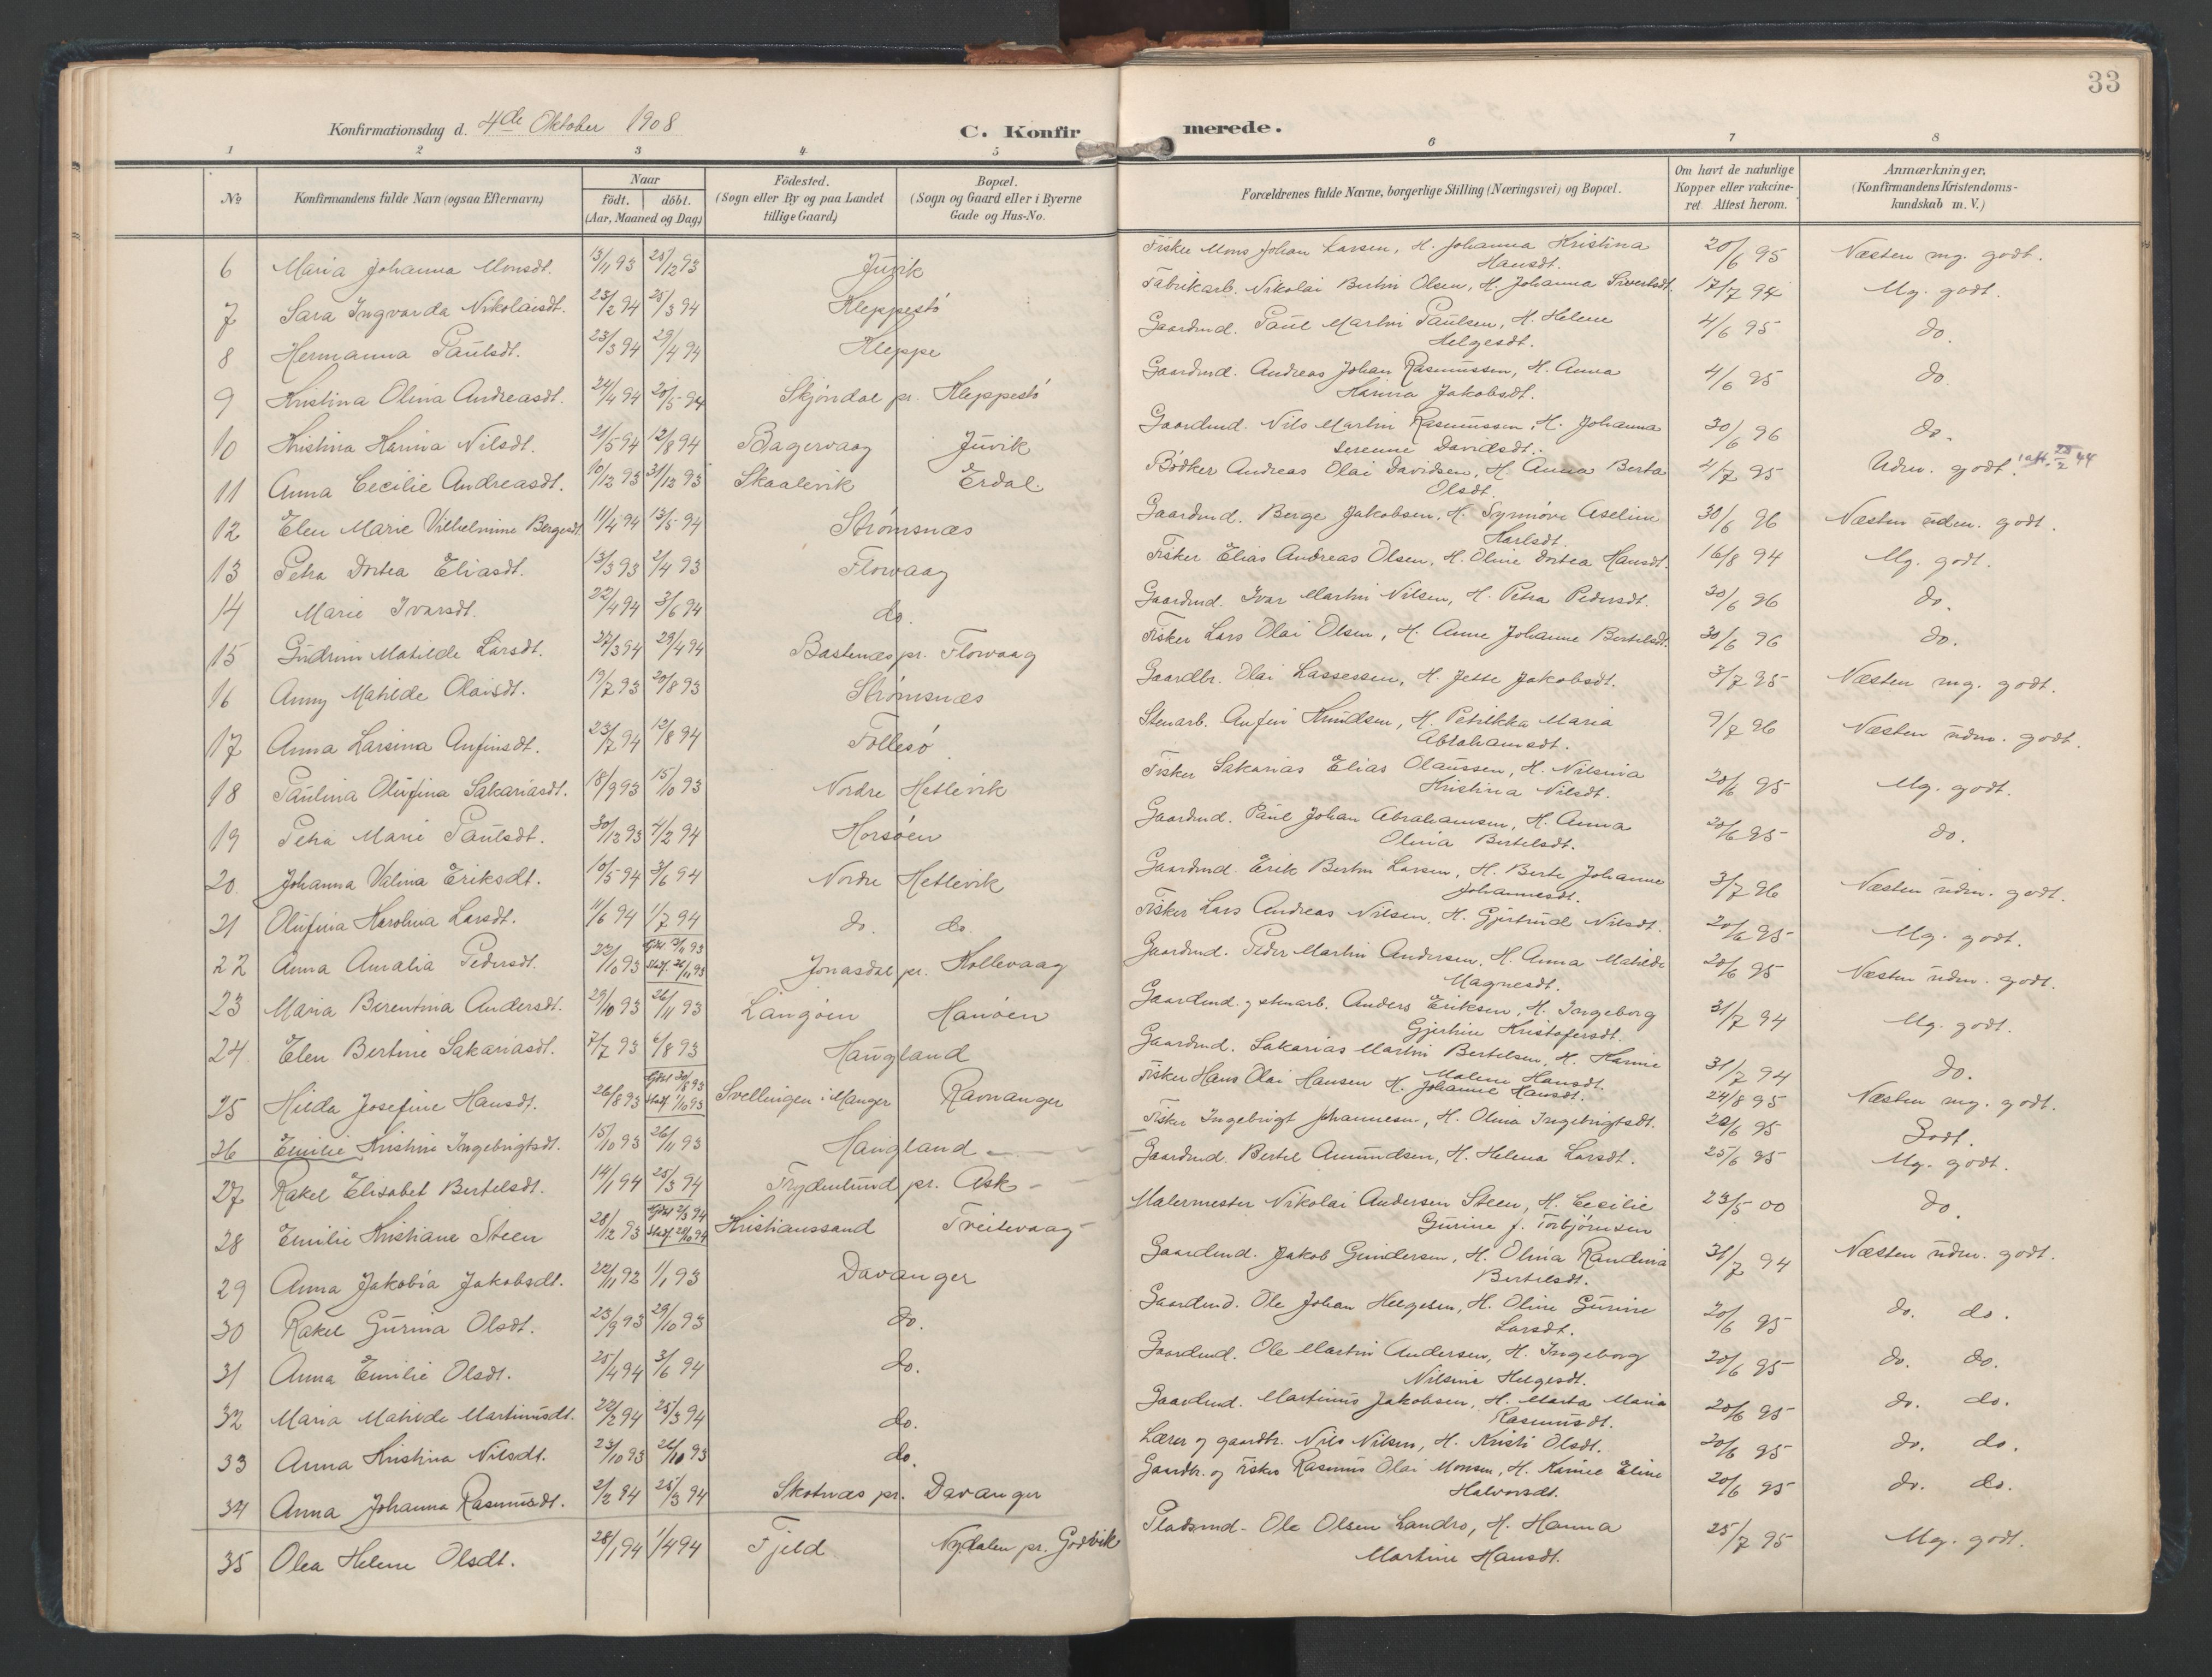 33
Konfirmationsdag d. 4de Oktober 1908
C. Konfirmerede.
1 2 3 4 5 6 7 8
No
Konfirmandens fulde Navn (ogsaa Efternavn)
Naar
födt. döbt.
(Aar, Maaned og Dag)
Födested.
(Sogn eller By og paa Landet
tillige Gaard)
Bopæl.
(Sogn og Gaard eller i Byerne
Gade og Hus-No.
Forældrenes fulde Navne, borgerlige Stilling (Næringsvei) og Bopæl.
Om havt de naturlige
Kopper eller vakcine-
ret. Attest herom.
Anmærkninger,
(Konfirmandens Kristendoms-
kundskab m. V.)
6 Maria Johanna Monsdt. 13/11 93 25/12 93 Juvik Fisker Mons Johan Larsen, H. Johanna Kristina 20/6 95 Næsten mg. godt.
Hansdt.
7 Sara Ingvarda Nikolaisdt. 23/2 94 25/3 94 Kleppestö Fabrikarb. Nikolai Bertin Olsen, H. Johanna Sivertsdt. 17/7 94 Mg. godt.
8 Hermanna Paulsdt. 23/3 94 29/4 94 Kleppe Gaardmd. Paul Martin Paulsen, H. Helene 4/6 95 do.
Helgesdt.
9 Kristina Olina Andreasdt. 24/4 94 20/5 94 Skjöndal pr. Kleppestö Gaardmd. Andreas Johan Rasmussen, H. Anna 4/6 95 do.
Karina Jakobsdt.
10 Kristina Karina Nilsdt. 21/5 94 12/8 94 Bagervaag Juvik Gaardmd. Nils Martin Rasmussen, H. Johanna 30/6 96 do.
Serenne Davidsdt.
11 Anna Cecilie Andreasdt. 10/12 93 31/12 93 Skaalevik Erdal. Bödker Andreas Olai Davidsen, H. Anna Berta 4/7 95 Udm. godt. 1 att. 28/2 44
Olsdt.
12 Elen Marie Vilhelmine Bergesdt. 11/4 94 13/5 94 Strömsnæs Gaardmd. Berge Jakobsen, H. Synnöve Aseline 30/6 96 Næsten udm. godt.
Karlsdt.
13 Petra Dortea Eliasdt. 13/3 93 2/4 93 Florvaag Fisker Elias Andreas Olsen, H. Oline Dortea Hansdt. 16/8 94 Mg. godt.
14 Marie Ivarsdt. 22/4 94 3/6 94 do. Gaardmd. Ivar Martin Nilsen, H. Petra Pedersdt. 30/6 96 do.
15 Gudrun Matilde Larsdt. 27/3 94 29/4 94 Bastenæs pr. Florvaag Fisker Lars Olai Olsen, H. Anne Johanne Bertelsdt. 30/6 96 do.
16 Anny Matilde Olaisdt. 19/7 93 20/8 93 Strömsnæs Gaardbr. Olai Lassessen, H. Jette Jakobsdt. 3/7 95 Næsten mg. godt.
17 Anna Larsina Anfinsdt. 23/7 94 12/8 94 Follesö Stenarb. Anfin Knudsen, H. Petrikka Maria 9/7 96 Næsten udm. godt.
Abrahamsdt.
18 Paulina Olufina Sakariasdt. 18/9 93 15/10 93 Nordre Hetlevik Fisker Sakarias Elias Olaussen, H. Nilsina 20/6 95 Mg. godt.
Kristina Nilsdt.
19 Petra Marie Paulsdt. 30/12 93 4/2 94 Horsöen Gaardmd. Paul Johan Abrahamsen, H. Anna 20/6 95 do.
Olina Bertelsdt.
20 Johanna Valina Eriksdt. 10/5 94 3/6 94 Nordre Hetlevik Gaardmd. Erik Bertin Larsen, H. Berte Johanne 3/7 96 Næsten udm. godt.
Johannesdt.
21 Olufina Karolina Larsdt. 11/6 94 1/7 94 do. do. Fisker Lars Andreas Nilsen, H. Gjertrud Nilsdt. 20/6 95 Mg. godt.
22 Anna Amalia Pedersdt. 22/10 93 Hjdöbt 3/11 93 Jonasdal pr. Kollevaag Gaardmd. Peder Martin Andersen, H. Anna Matilde 20/6 95 Næsten udm. godt.
Stadf. 26/11 93
Magnesdt.
23 Maria Berentina Andersdt. 29/10 93 26/11 93 Langöen Hanöen Gaardmd. og stenarb. Anders Eriksen, H. Ingeborg 31/7 94 Mg. godt.
Gjertine Kristofersdt.
24 Elen Bertine Sakariasdt. 7/7 93 6/8 93 Haugland Gaardmd. Sakarias Martin Bertelsen, H. Karine 31/7 94 do.
Malene Hansdt.
25 Hilda Josefine Hansdt. 26/8 93 Stadf. 1/10 93 Svellingen i Manger Ravnanger Fisker Hans Olai Hansen H. Johanne Hansdt. 24/8 95 Næsten mg. godt.
26 Emilie Kristine Ingebrigtsdt. 15/10 93 26/11 93 Haugland Fisker Ingebrigt Johannesen, H. Olina Ingebrigtsdt. 20/6 95 Godt.
27 Rakel Elisabet Bertelsdt. 14/1 94 25/3 94 Frydenlund pr. Ask Gaardmd. Bertel Amundsen, H. Helena Larsdt. 25/6 95 Mg. godt.
28 Emilie Kristiane Steen 28/12 93 Stadf. 28/10 94 Kristianssand Treitevaag Malermester Nikolai Andersen Steen, H. Cecilie 23/5 00 do.
Gurine f. Torbjörnsen
29 Anna Jakobia Jakobsdt. 22/11 92 1/1 93 Davanger Gaardmd. Jakob Gundersen, H. Olina Randina 31/7 94 Næsten udm. godt.
Bertelsdt.
30 Rakel Gurina Olsdt. 23/9 93 29/10 93 do. Gaardmd. Ole Johan Helgesen, H. Oline Gurine 20/6 95 do. do.
Larsdt.
31 Anna Emilie Olsdt. 25/4 94 3/6 94 do. Gaardmd. Ole Martin Andersen, H. Ingeborg 20/6 95 do. do.
Nilsine Helgesdt.
32 Maria Matilde Martinusdt. 22/2 94 25/3 94 do. Gaardmd. Martinus Jakobsen, H. Marta Maria 20/6 95 do. do.
Rasmusdt.
33 Anna Kristina Nilsdt. 23/10 93 26/10 93 do. Lærer og gaardbr. Nils Nilsen, H. Kristi Olsdt. 20/6 95 do. do.
34 Anna Johanna Rasmusdt. 2/2 94 25/3 94 Skotnæs pr. Davanger Gaardbr. og fisker Rasmus Olai Monsen, H. Karine Eline 20/6 95 do. do.
Halvorsdt.
35 Olea Helene Olsdt. 28/1 94 1/4 94 Fjeld Nydalen pr. Godvik Pladsmd. Ole Olsen Landro, H. Hanna 25/7 95 Mg. godt.
Martine Hansdt.